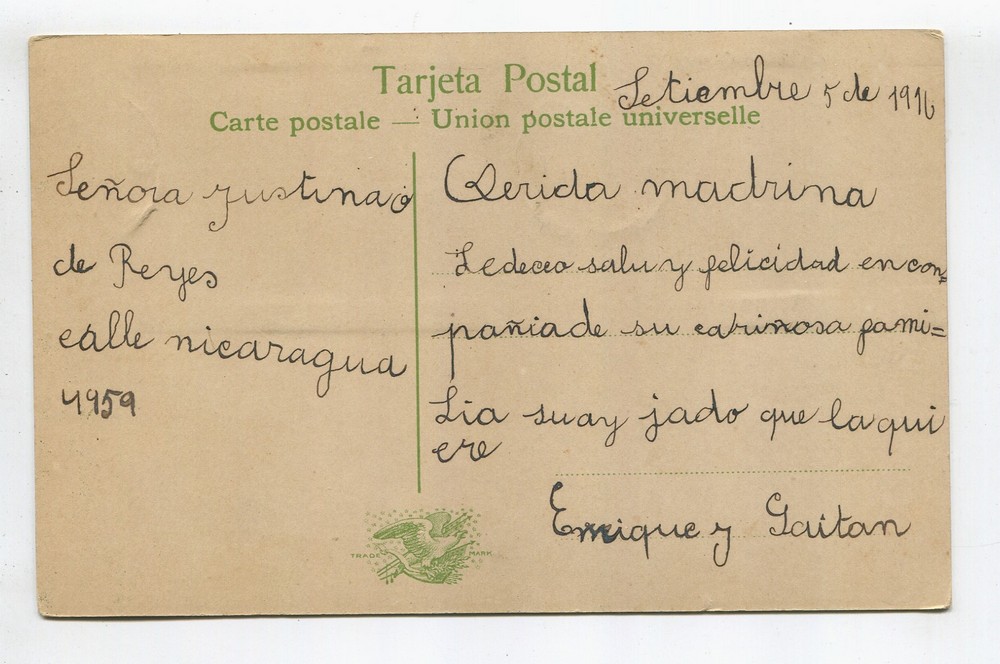 Tarjeta Postal
Setiembre 5 de 1916
Carte postale — Union postale universelle
Señora justina G
de Reyes
calle nicaragua
4959
Qerida madrina
Le deceo salu y felicidad en con=
pañia de su cariñosa fami=
Lia su ay jado que la qui
ere
Enrique y Gaitan
TRADE MARK